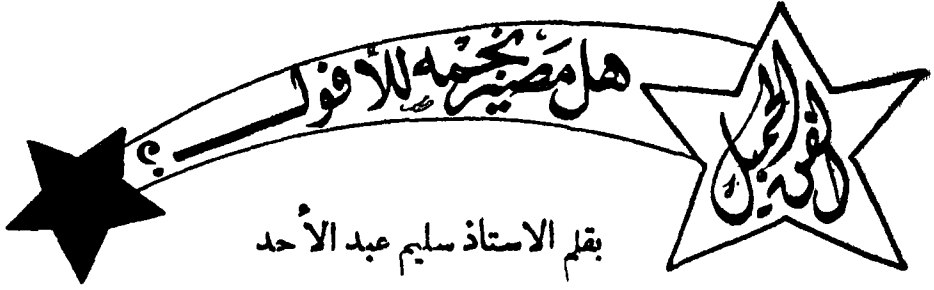 الفن الجميل
هل مصير نجمه للأفول؟
بقلم الاستاذ سليم عبد الأحد